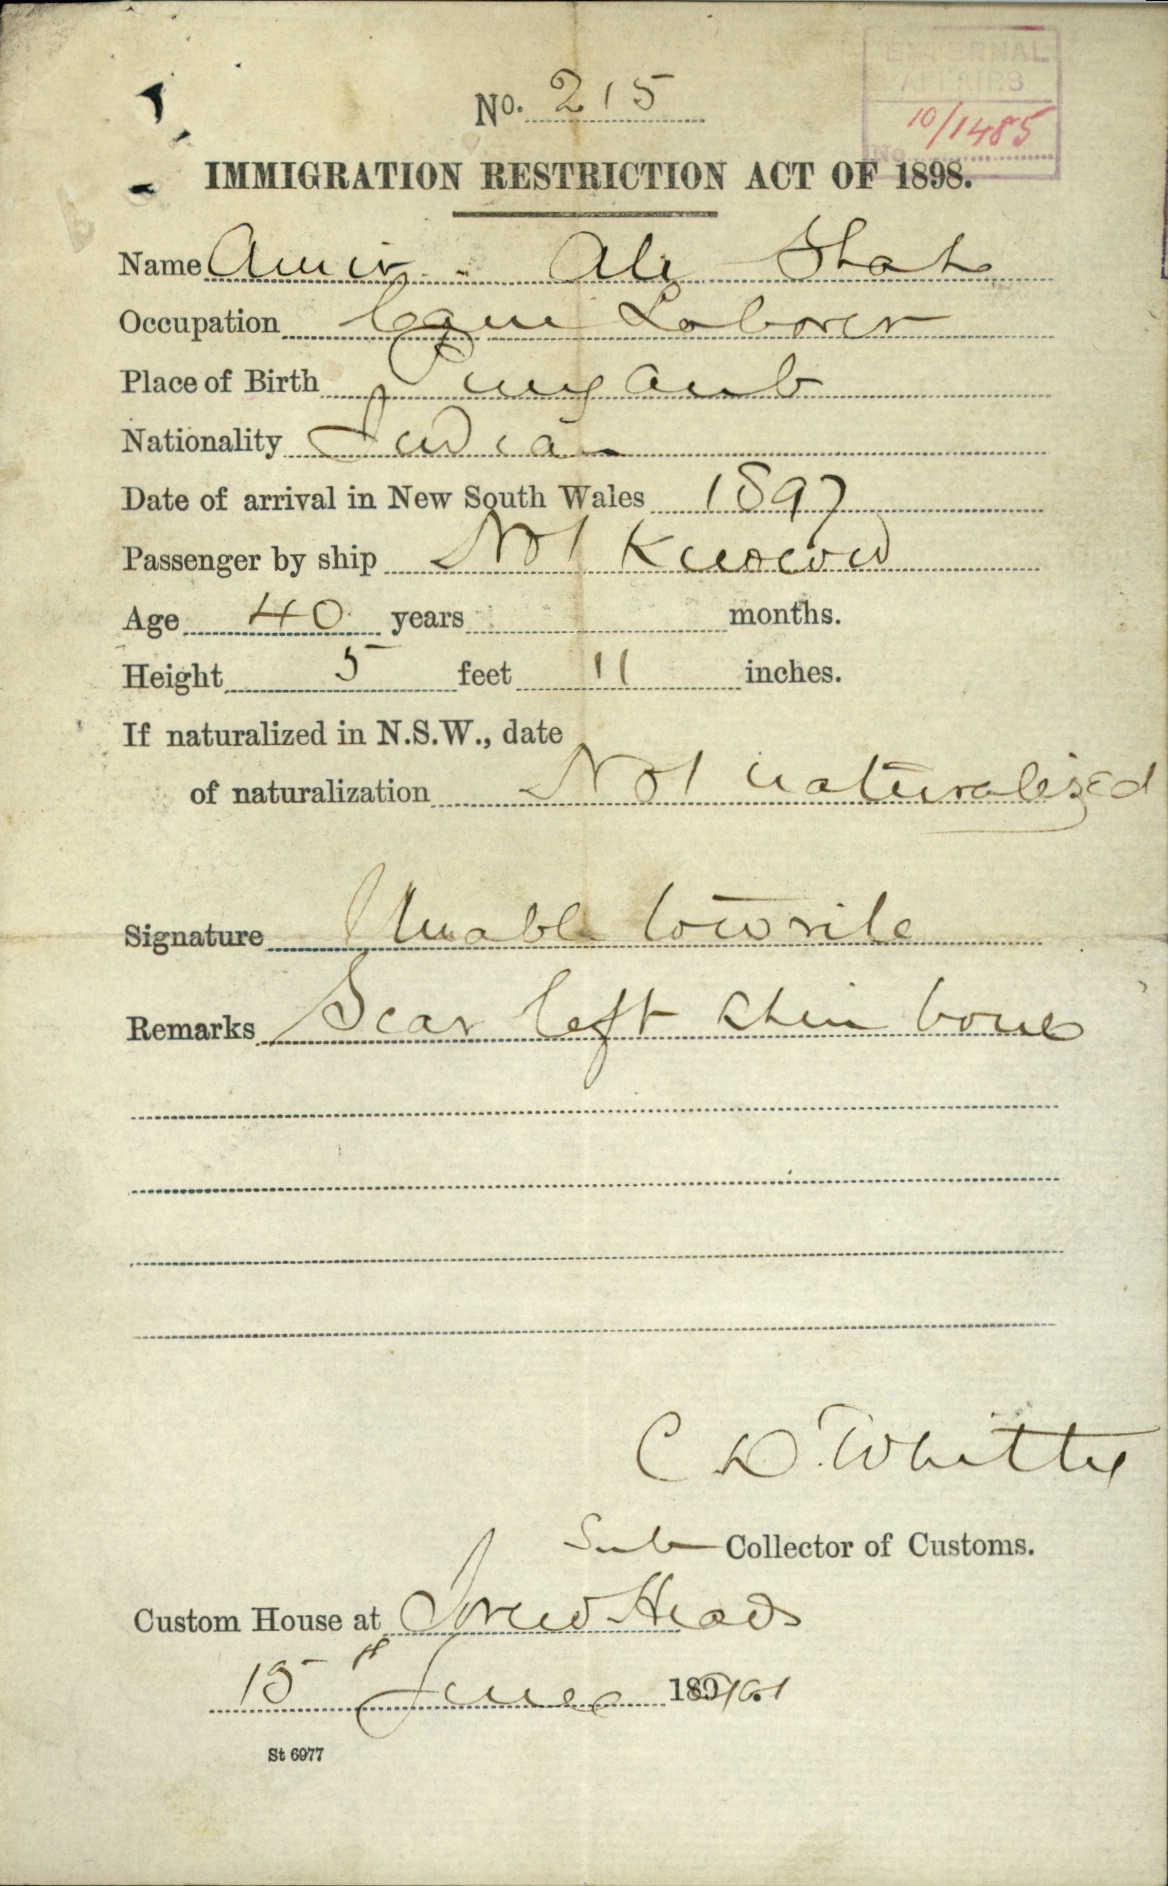 EXTERNAL
AFFAIRS
No. 10/1485
No. 215
IMMIGRATION RESTRICTION ACT OF 1898.
Name Amir - Ali Shah
Occupation Cane Laborer
Place of Birth Punjaub
Nationality Indian
Date of arrival in New South Wales 1897
Passenger by ship Not Known
Age 40 years months.
Height 5 feet 11 inches.
If naturalized in N.S.W., date
of naturalization Not naturalized
Signature Unable to write
Remarks Scar left shin bone
C D. Whitty
Sub Collector of Customs.
Custom House at Tweed Heads
15th June 1901
St 6977